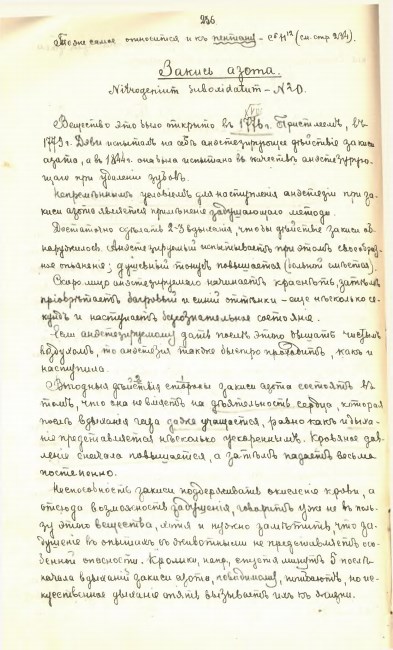 286
Тоже самое относится и къ пентану - C5H12 (см. стр. 284).
Закись азота.
Nitrogenium suboxidatum - N2O.
Вещество это было открыто въ 1776 г. Пристлеемъ, въ
1779 г. Дэви испыталъ на себѣ анэстезирующее дѣйствіе закиси
азота, а въ 1844 г. она была испытана въ качествѣ анэстезирую-
щаго при удаленіи зубовъ.
Непремѣннымъ условіемъ для наступленія анэстезіи при за-
киси азота является примѣненіе задушающаго метода.
Достаточно сдѣлать 2-3 вдыханія, чтобы дѣйствіе закиси об-
наружилось. Анэстезируемый испытываетъ при этомъ своеобраз-
ное опьяненіе; душевный тонусъ повышается (больной смѣется).
Скоро лицо анэстезируемаго начинаетъ краснѣть, затѣмъ
пріобрѣтаетъ багровый и синій оттѣнки - еще нѣсколько се-
кундъ и наступаетъ безсознательное состояніе.
Если анэстезируемому дать послѣ этого дышать чистымъ
воздухомъ, то анэстезія также быстро проходитъ, какъ и
наступила.
Выгодныя стороны закиси азота состоятъ въ
томъ, что она не вліяетъ на дѣятельность сердца, которая
послѣ вдыханія газа даже учащается, равно какъ и дыха-
ніе представляется нѣсколько ускореннымъ. Кровяное дав-
леніе сначала повышается, а затѣмъ падаетъ весьма
постепенно.
Неспособность закиси поддерживать окисленіе крови, а
отсюда возможность задушенія, говоритъ уже не въ поль-
зу этого вещества, хотя и нужно замѣтить, что за-
душеніе въ опытахъ съ животными не представляетъ осо-
бенной опасности. Кролики, напр., спустя минутъ 5 послѣ
начала вдыханій закиси азота, повидимому, погибаютъ, но ис-
кусственное дыханіе опять вызываетъ ихъ къ жизни.